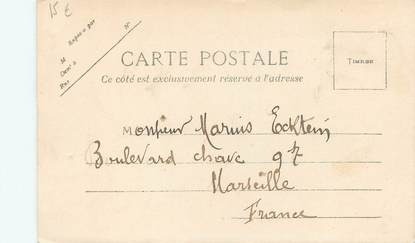 15 €
Exp
M
N°
CARTE POSTALE
Ce côté est exclusivement réservé à l'adresse
TIMBRE
Monsieur Marius Eckstein
Boulevard chave 97
Marseille
France